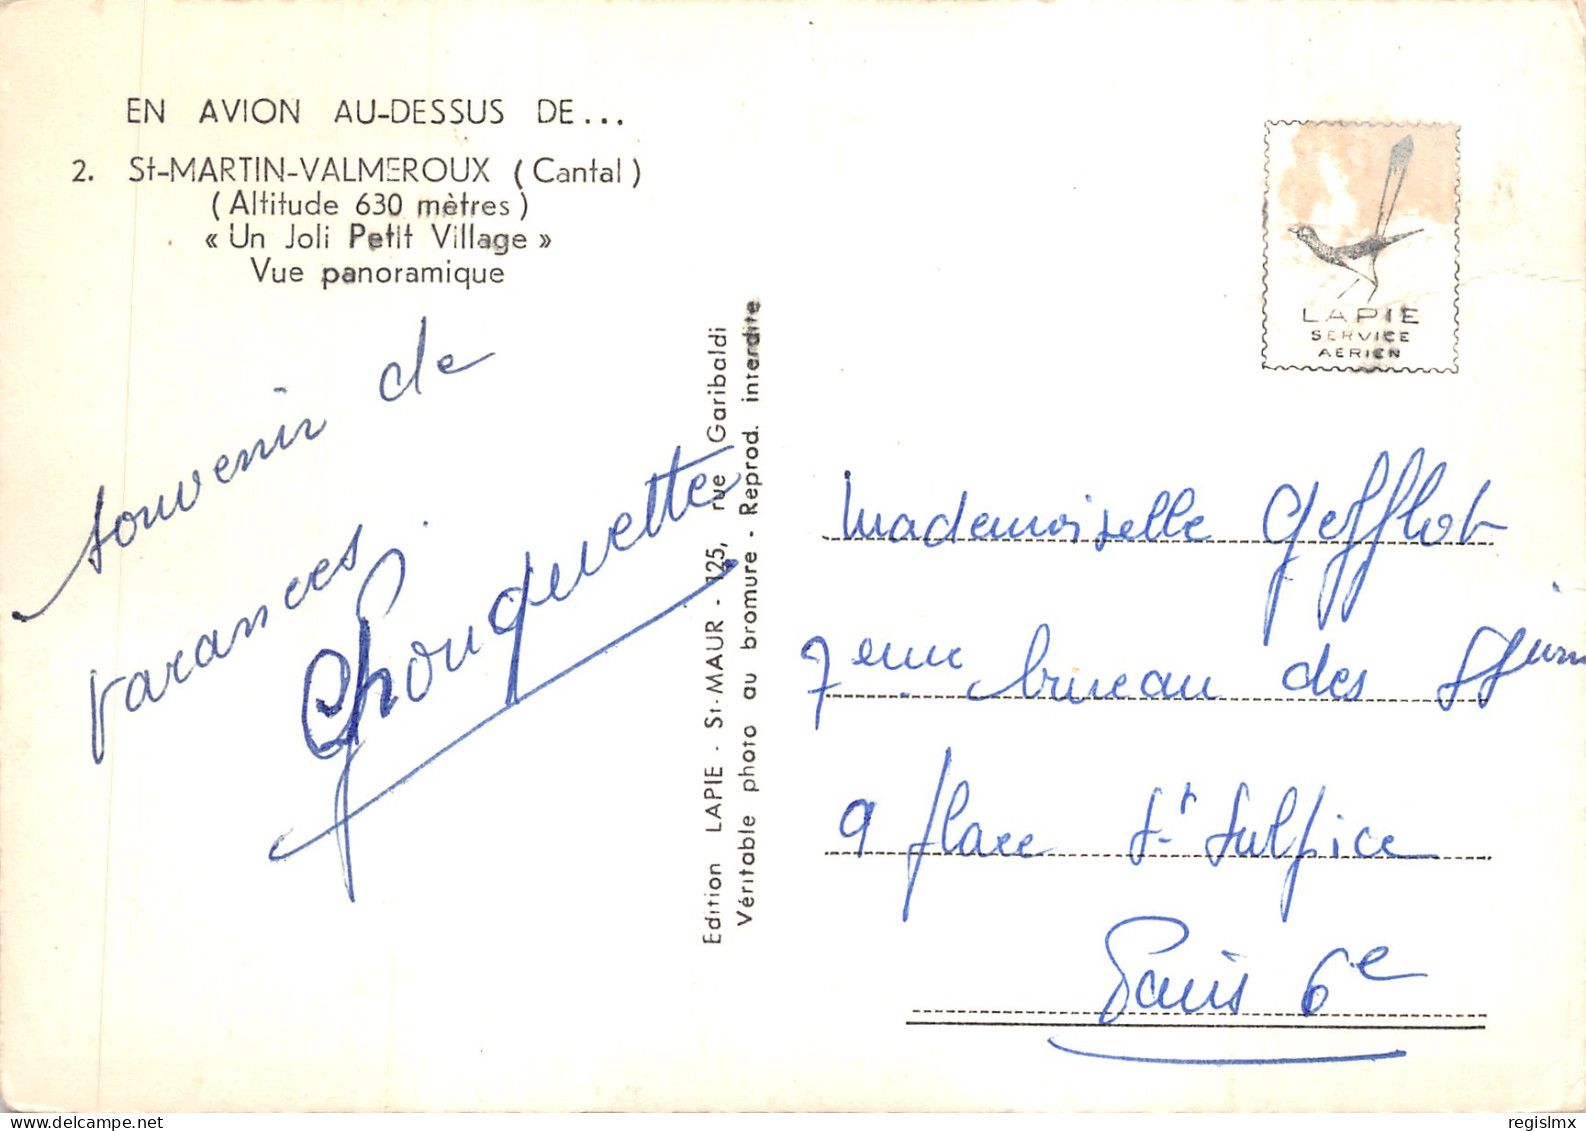 EN AVION AU-DESSUS DE...
2. St-MARTIN-VALMEROUX (Cantal)
(Altitude 630 mètres)
« Un Joli Petit Village »
Vue panoramique
souvenir de
vacances.
Chouquette
Edition LAPIE - St-MAUR - 125, rue Garibaldi
Véritable photo au bromure - Reprod. interdite
LAPIE
SERVICE
AÉRIEN
Mademoiselle Gefflot
7eme bureau des
9 place St Sulpice
Paris 6e
regislmx